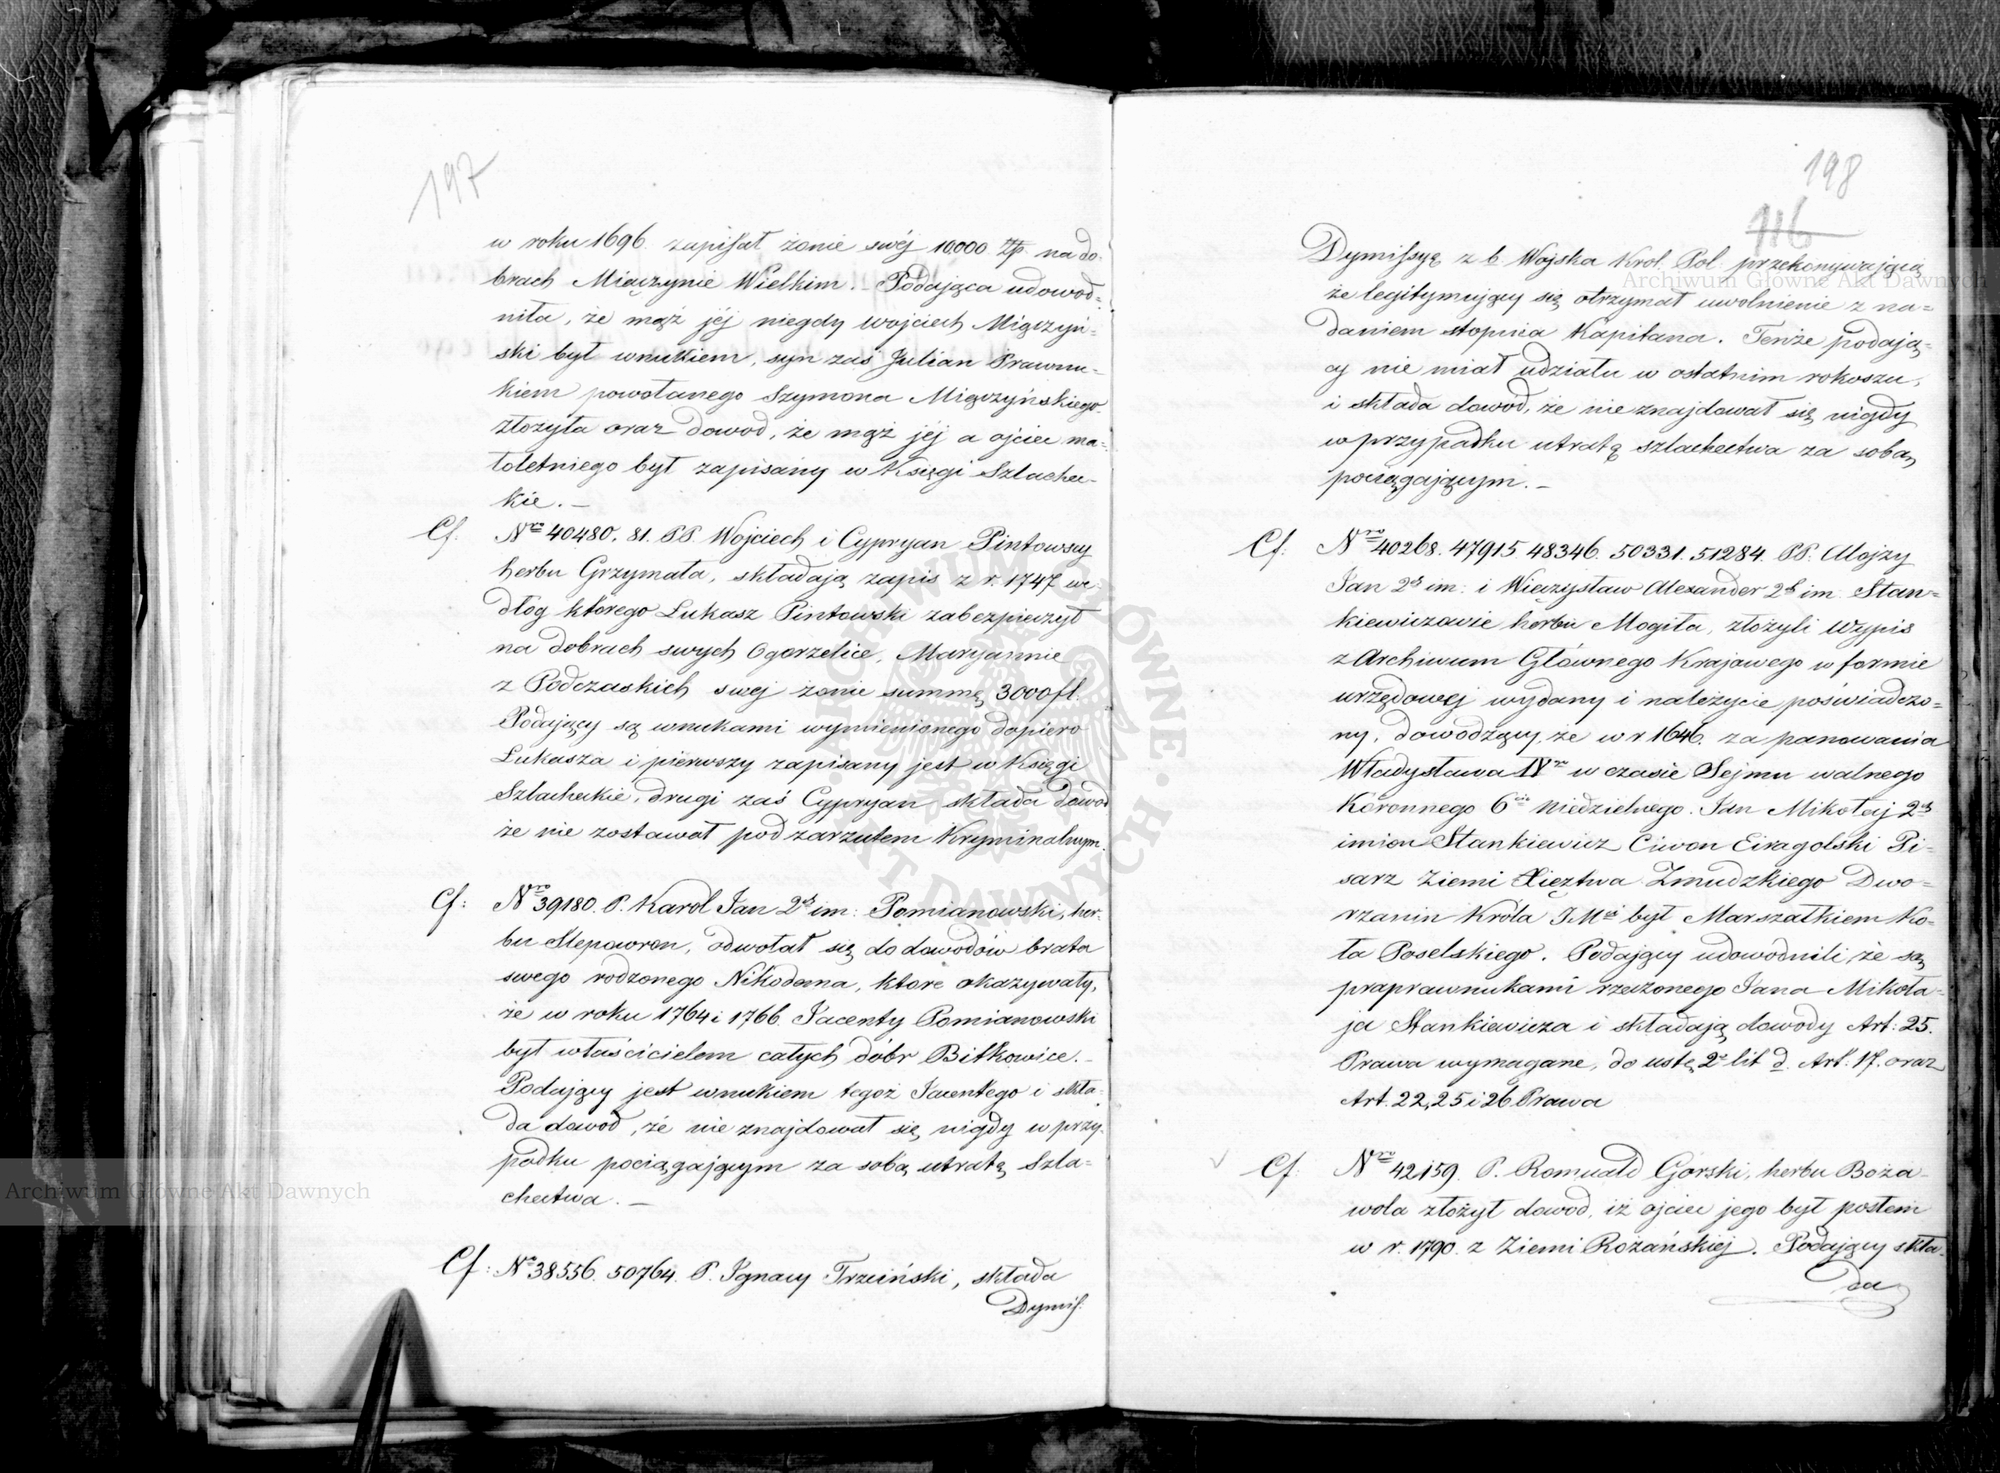 197
w roku 1696. zapisał żonie swéj 10.000 Złp. na do-
brach Miączynie Wielkim. Podająca udowod-
niła, że mąż jéj niegdy Wojciech Miączyń-
ski był wnukiem, syn zaś Julian Prawnu-
kiem powołanego Szymona Miączyńskiego.
złożyła oraz dowód, że mąż jéj a ojciec ma-
łoletniego był zapisany w Księgi Szlachec-
kie. —
Cf. Nro 40480. 81. PP. Wojciech i Cypryan Pintowscy
herbu Grzymała, składają zapis z r. 1747 we-
dług którego Łukasz Pintowski zabezpieczył
na dobrach swych Ogorzelice, Maryannie
z Podczaskich swej żonie summę 3000 fl.
Podający są wnukami wymienionego dopiero
Łukasza i pierwszy zapisany jest w Księgi
Szlacheckie, drugi zaś Cypryan składa dowod
że nie zostawał pod zarzutem Kryminalnym.
Cf: Nro 39180. P. Karol Jan 2ch im: Pomianowski, her-
bu Slepowron, odwołał się do dowodów brata
swego rodzonego Nikodema, które okazywały,
że w roku 1764 i 1766. Jacenty Pomianowski
był właścicielem całych dóbr Bitkowice. –
Podający jest wnukiem tegoż Jacentego i skła-
da dowód, że nie znajdował się nigdy w przy-
padku pociągającym za sobą utratę Szla-
chectwa. —
Cf: Nro 38556. 50764. P. Ignacy Trzciński, składa
Dymis:
198
116
Dymissyą z b. Wojska Król. Pol. przekonywającą
że legitymujący się otrzymał uwolnienie z na-
daniem stopnia Kapitana. Tenże podają-
cy nie miał udziału w ostatnim rokoszu,
i składa dowód, że nie znajdował się nigdy
w przypadku utratę szlachectwa za sobą
pociągającym. –
Cf: Nro 40268. 47915 48346. 50331. 51284. PP. Alojzy
Jan 2ch im: i Mieczysław Alexander 2ch im. Stan-
kiewiczowie herbu Mogiła, złożyli Wypis
z Archiwum Głównego Krajowego w formie
urzędowej wydany i należycie poświadczo-
ny, dowodzący, że w r 1646. za panowania
Władysława IVgo w czasie Sejmu walnego
Koronnego 6cio niedzielnego. Jan Mikołaj 2ch
imion Stankiewicz Ciwon Eiragolski Pi-
sarz Ziemi Xięztwa Zmudzkiego Dwo-
rzanin Króla JMci był Marszałkiem Ko-
ła Poselskiego. Podający udowodnili, że są
praprawnukami rzeczonego Jana Mikoła-
ja Stankiewicza i składają dowody Art: 25.
Prawa wymagane, do ustę 2o lit d. Art: 17. oraz
Art. 22, 25 i 26 Prawa
Cf: Nro 42159. P. Romuald Gorski, herbu Boża-
wola złożył dowod, iż ojciec jego był posłem
w r. 1790. z Ziemi Rożańskiej. Podający skła-
da
Archiwum Główne Akt Dawnych
Archiwum Główne Akt Dawnych
ARCHIWUM GŁÓWNE · AKT DAWNYCH ·